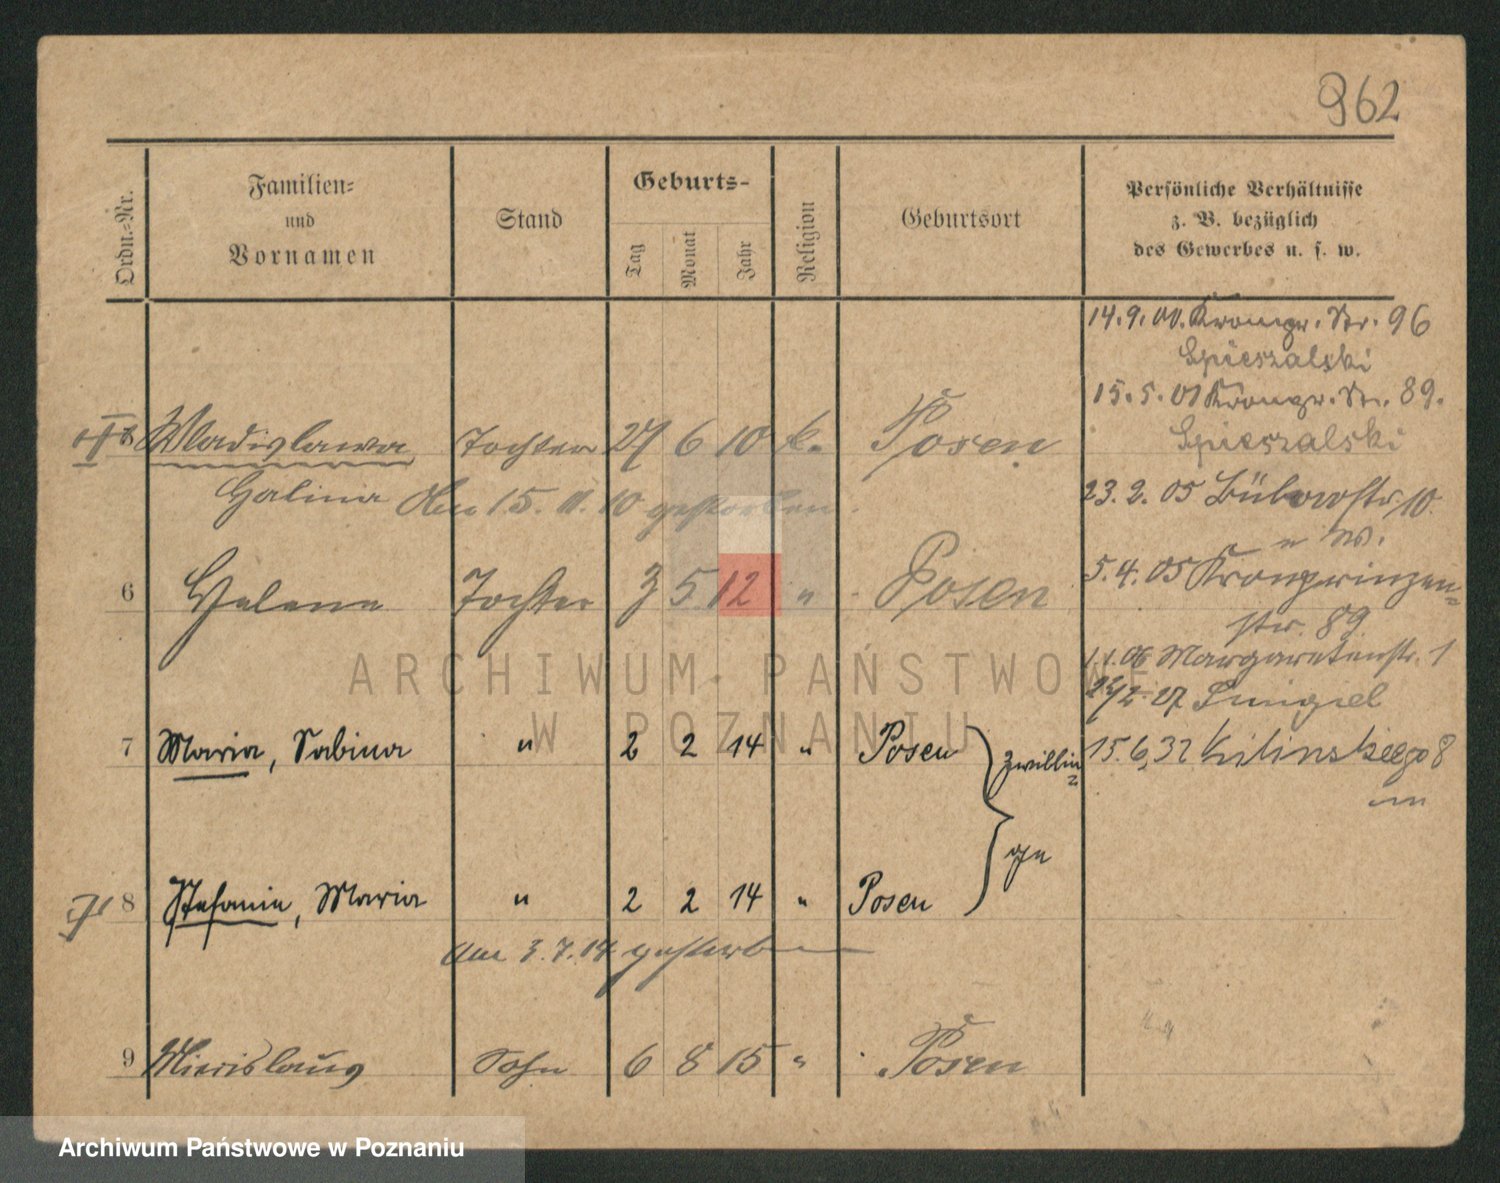 962
Ordn.-Nr.
Familien-
und
Vornamen
Stand
Geburts-
Tag
Monat
Jahr
Religion
Geburtsort
Persönliche Verhältnisse
z. B. bezüglich
des Gewerbes u. s. w.
14.9.00. Kronpr. Str. 96
Spieszalski
15.5.01 Kronpr. Str. 89.
Spieszalski
Wladislawa Tochter 27 6 10 k. Posen
Halina Am 15.11.10 gestorben.
23.2.05 Bülowstr 10.
5.4.05 Kronprinzen-
str. 89
6 Helene Tochter 3 5 12 " Posen
1.1.06 Margaretenstr. 1
ARCHIWUM PAŃSTWOWE
W POZNANIU
2.07 Smigiel
7 Maria, Sabina " 2 2 14 " Posen
Zwillin=
ge
15.6.32 Kilinskiego 8
8 Stefanie, Maria " 2 2 14 " Posen
am 3.7.14 gestorben
9 Mieislaus Sohn 6 8 15 " Posen
Archiwum Państwowe w Poznaniu